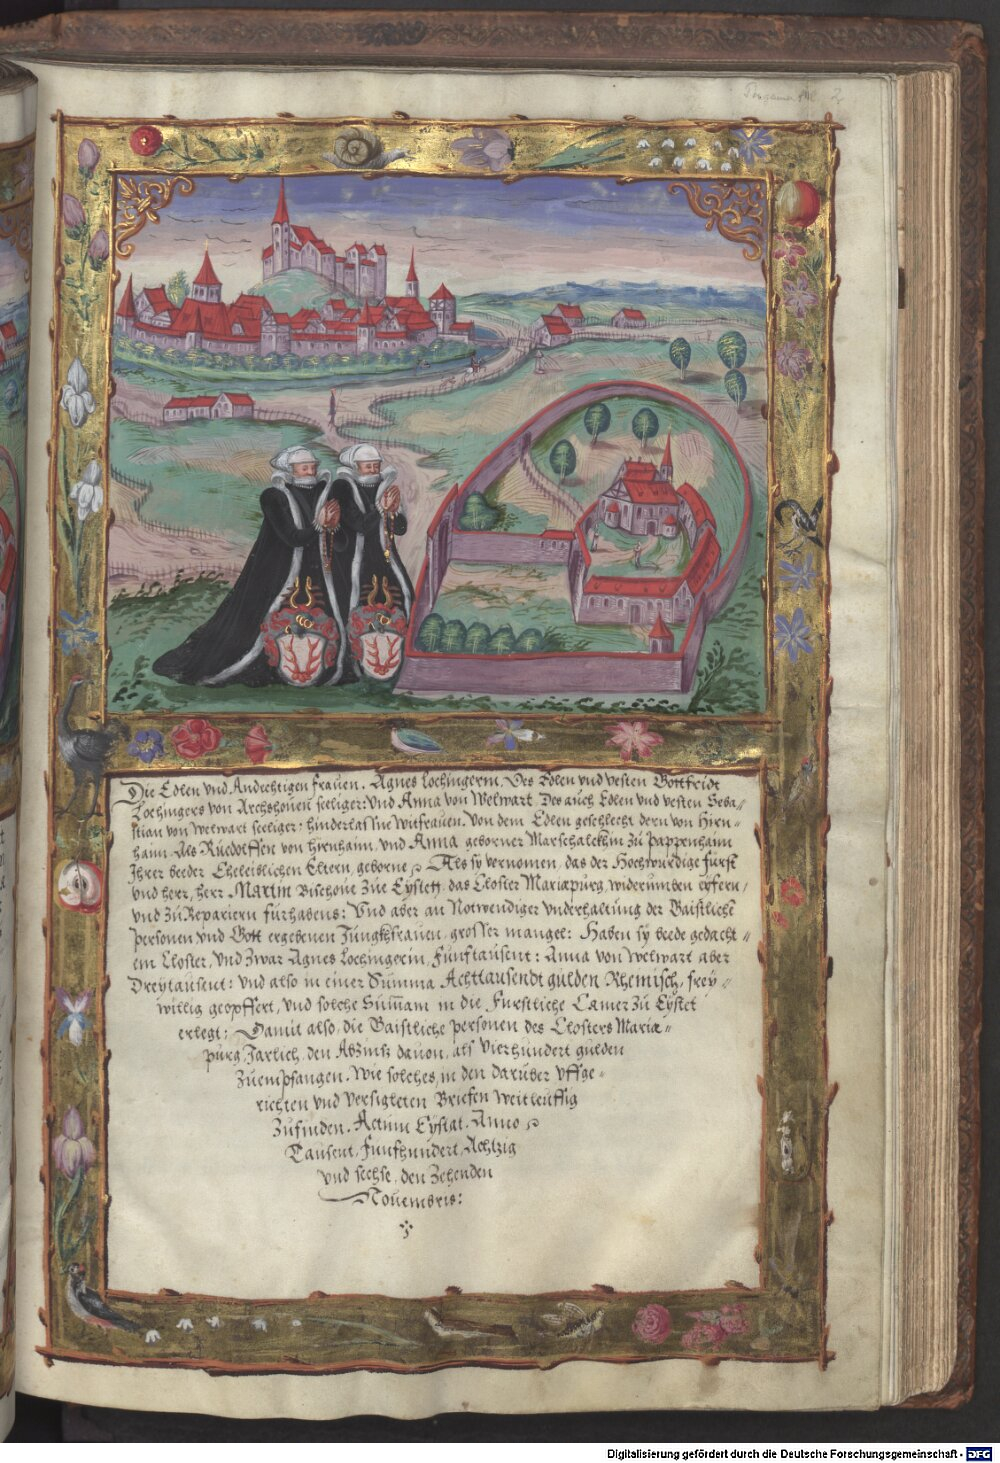 Die Edlen vnd Andechtigen frauen. Agnes Lochingerin. Des Edlen vnd vesten Gottfridt
Lochingers von Archshouen seeliger: Vnd Anna von Welwart. Des auch Edlen vnd vesten Seba=
stian von Welwart seeliger, hinderlassne Witfrauen. Von dem Edlen geschlecht dern von Hirn=
haim. Als Ruedolffen von hirnhaim, vnd Anna geborner Marschalckhin zu Pappenhaim
Ihrer beeder Eheleiblichen Eltern, geborne. Als sy vernomen, das der Hochwürdige fürst
vnd herr, herr Martin Bischoue zue Eystett, das Closter Mariæpurg, widerumben eyfern,
vnd zu Repariern fürhabens: Vnd aber an Notwendiger vnderhaltung der Gaistlichen
personen vnd Gott ergebenen Jungkfrauen, grosser mangel: Haben sy beede gedacht=
em Closter, Vnd zwar Agnes Lochingerin, Funftausent: Anna von Welwart aber
Dreytausent: vnd also in einer Summa Achttausendt gulden Rhemisch, frey=
willig geopffert, vnd solche Sum̄am in die Furstliche Camer zu Eystet
erlegt: Damit also, die Gaistliche personen des Closters Mariæ=
purg, Jarlich, den Abzinss dauon, als vierhundert gulden
zuempfangen. Wie solches, in den darüber vffge=
richten vnd versigleten Briefen weitleuffig
zufinden. Actum Eystat. Anno
Tausent, Funfhundert, Achtzig
vnd sechse, den Zehenden
Nouembris:
2
Digitalisierung gefördert durch die Deutsche Forschungsgemeinschaft - DFG